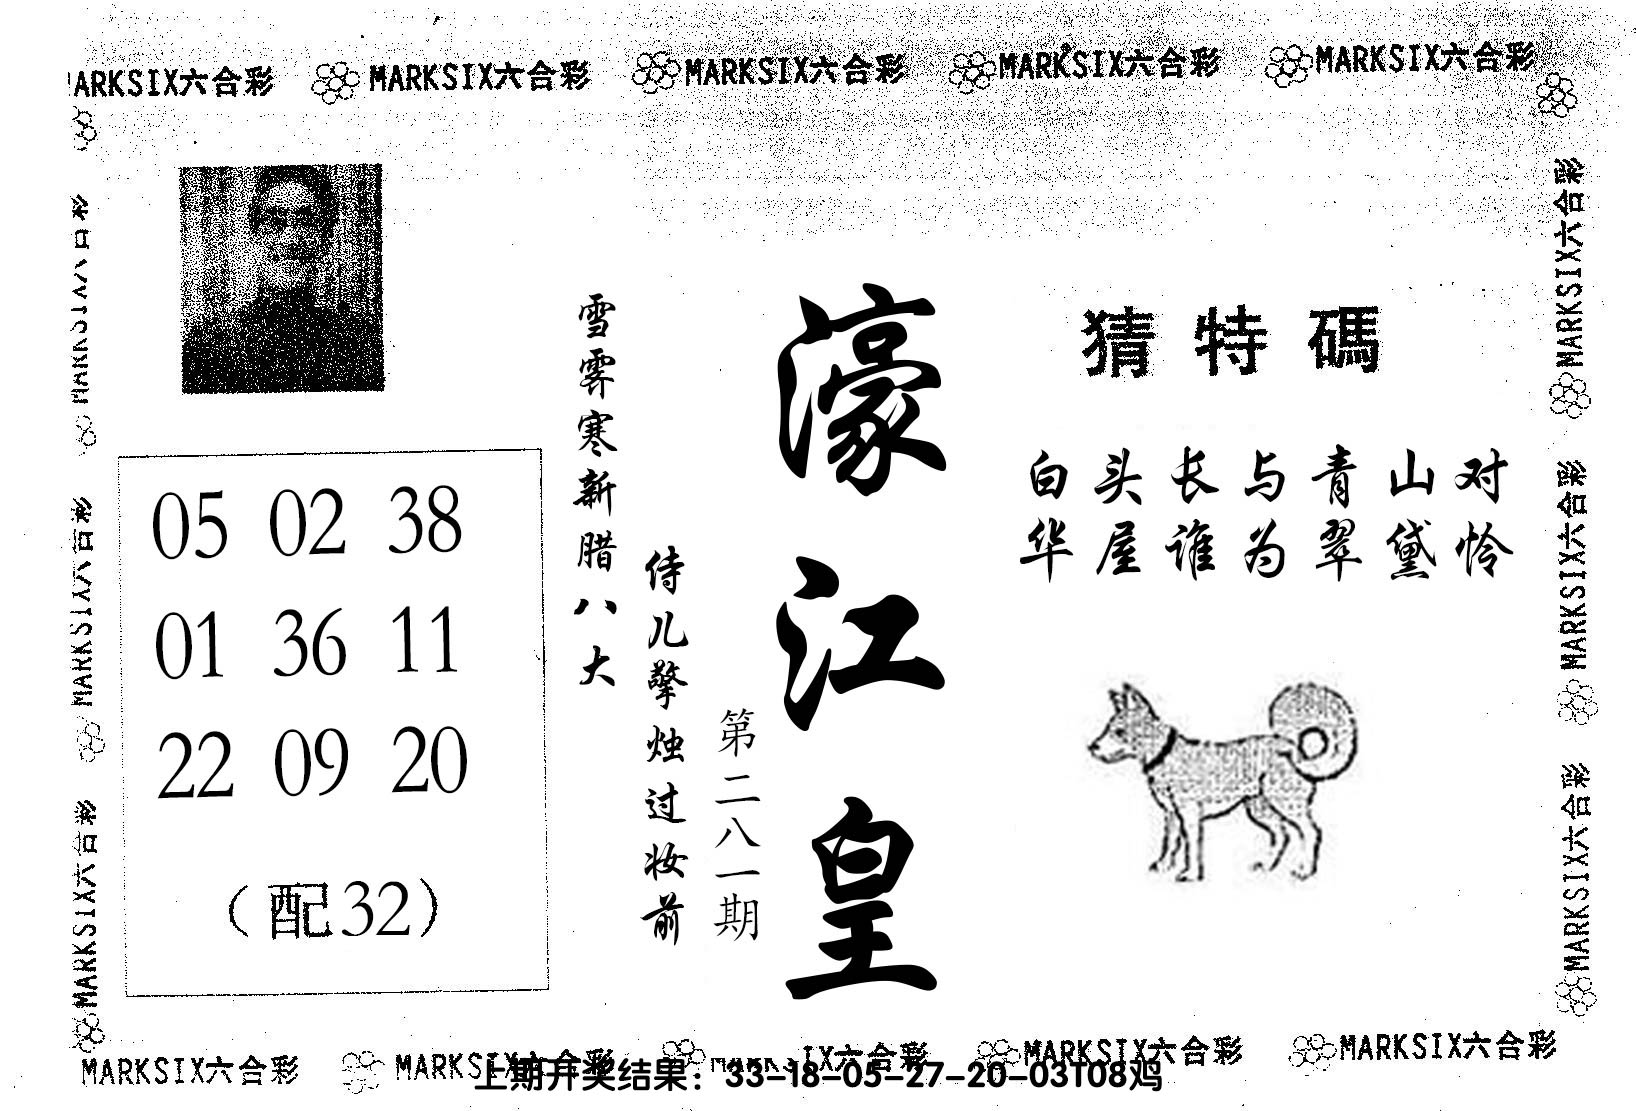 MARKSIX六合彩 MARKSIX六合彩 MARKSIX六合彩 MARKSIX六合彩 MARKSIX六合彩
MARKSIX六合彩 MARKSIX六合彩 MARKSIX六合彩
05 02 38
01 36 11
22 09 20
（配32）
雪霁寒新腊八大
侍儿擎烛过妆前
第二八一期
濠江皇
猜特碼
白头长与青山对
华屋谁为翠黛怜
MARKSIX六合彩 MARKSIX六合彩 MARKSIX六合彩
MARKSIX六合彩 MARKSIX六合彩 MARKSIX六合彩 MARKSIX六合彩 MARKSIX六合彩
上期开奖结果：33-18-05-27-20-03T08鸡